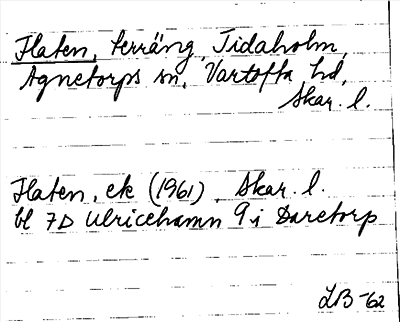 Flaten, terräng, Tidaholm,
Agnetorps sn, Vartofta hd,
Skar. l.
Flaten, ek (1961), Skar. l.
bl 7D Ulricehamn 9 i Daretorp
LB-62